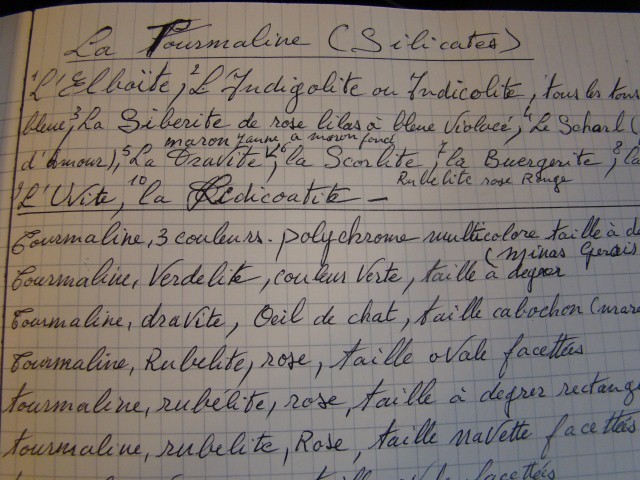 La Tourmaline (Silicates)
1 L'Elbaïte, 2 L'Indigolite ou Indicolite, tous les tons
bleue, 3 La Siberite de rose lilas à bleue Violacé, 4 Le Scharl (
maron jaune à maron foncé
d'amour), 5 La Dravite, 6 la Scorlite, 7 la Buergerite, 8 la
Rubelite rose Rouge
9 L'Uvite, 10 la Lidicoatite –
Tourmaline, 3 couleurs. polychrome multicolore taille à de
(Minas Gerais
Tourmaline, Verdelite, couleur Verte, taille à degrer
Tourmaline, dravite, Oeil de chat, taille cabochon (maro
Tourmaline, Rubelite, rose, taille oVale facettées
tourmaline, rubélite, rose, taille à degrer rectang
tourmaline, rubelite, Rose, taille navette facettées
taille ovale facettés